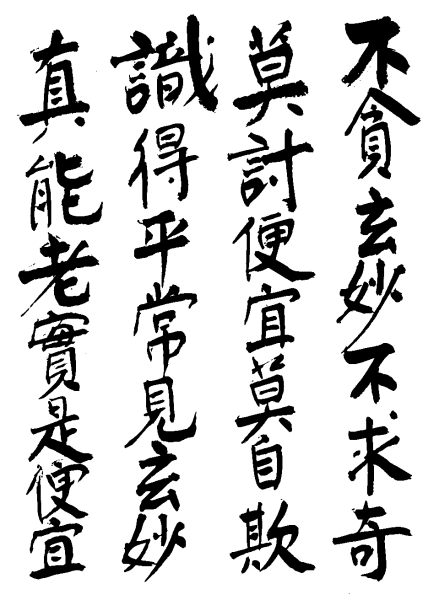 不貪玄妙不求奇
莫討便宜莫自欺
識得平常見玄妙
真能老實是便宜